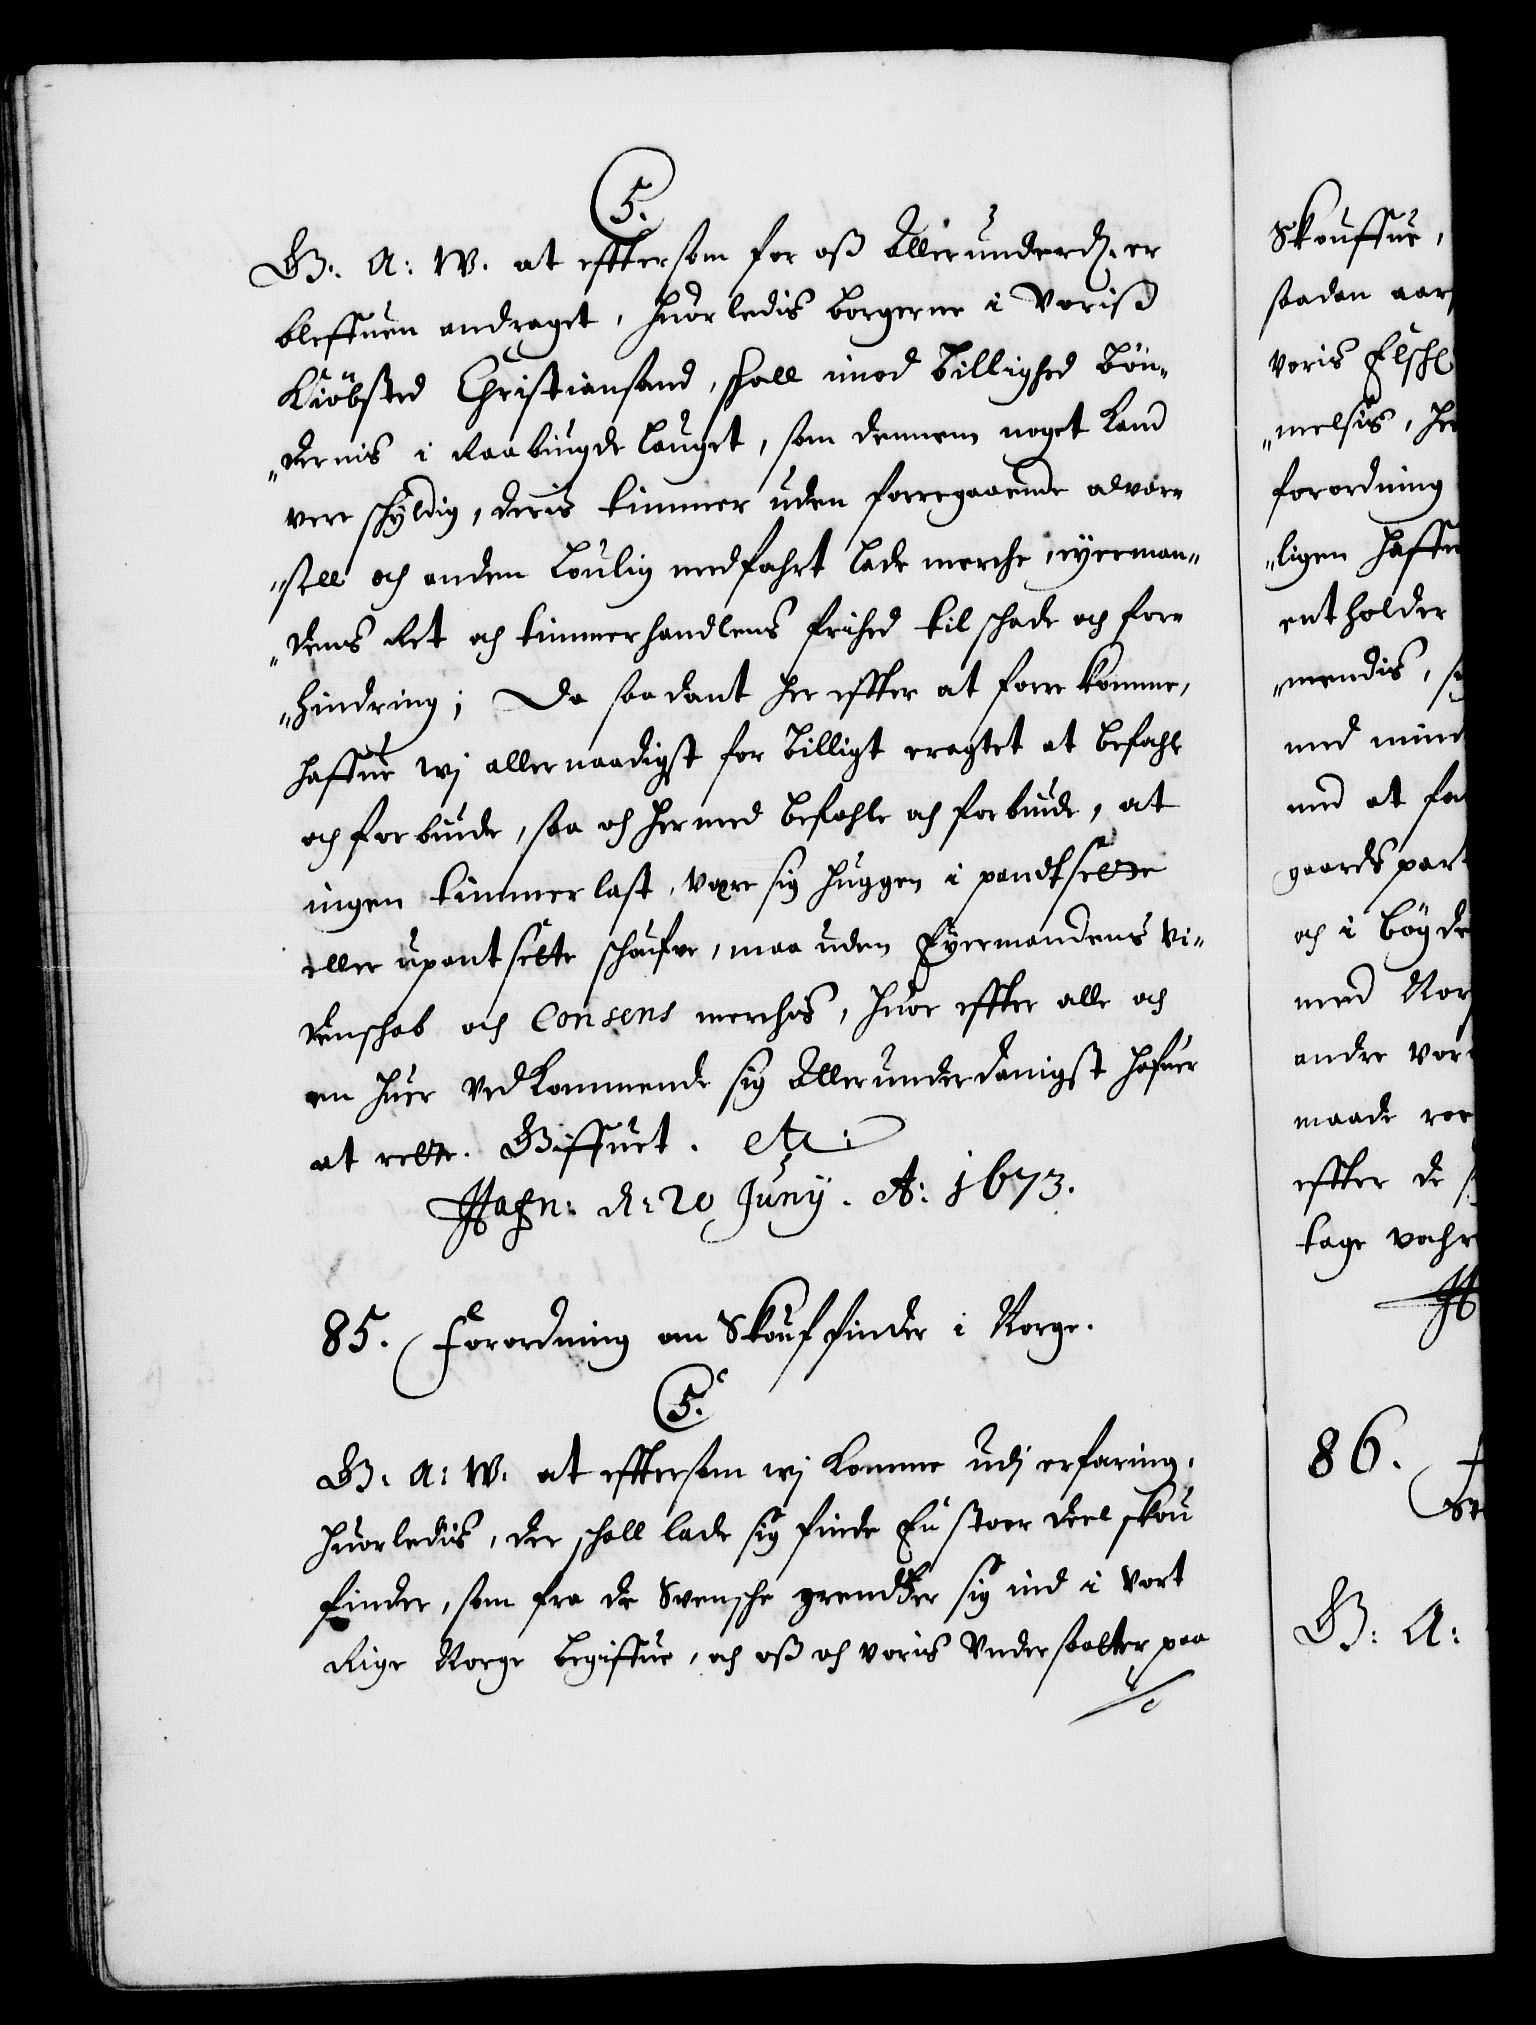 C5.
G. A: W. at efftersom for oß Allerunderd: er
bleffuen andraget, huorledis borgerne i Voriß
Kiöbsted Christiansand, skall imod billighed bön„
„dernis i Raabiugde lauget, som dennem noget kand
vere schyldig, deris timmer uden forregaaende advar„
„sell och anden loulig medfahrt lade merche, eyerman„
„dens Ret och timmerhandlens frihed til schade och for„
„hindring; Da saadant her effter at forre komme,
haffue wj allernaadigst for billigt eragtet at befahle
och forbiude, saa och hermed befahle och forbiude, at
ingen timmerlast, vare sig huggen i pandtsette
eller upantsette schoufve, maa uden Eyermandens vi„
denschab och Consens merchis, huor effter alle och
en huer vedkommende sig Allerunderdanigst hafuer
at rette. Giffuet. etc:
Hafn: d: 20 Juny. A: 1673.
85. Forordning om Skouffinder i Norge.
C5.
G. A: W. at efftersom wj komme udj erfaring,
huorledis, der schall lade sig finde En stoer deel skou
finder, som fra de Svensche grendtzer sig ind i vort
Rige Norge begiffue, och oß och voris Undersaatter paa
Skouffue,
saadan aar
voris
„melsis,
forordning
„ligen haffue
entholder
„mendis,
med
med at
gaards part
och i bögde
med Nor
andre vor
maade
effter de
tage vahre
H
86.
G: A: